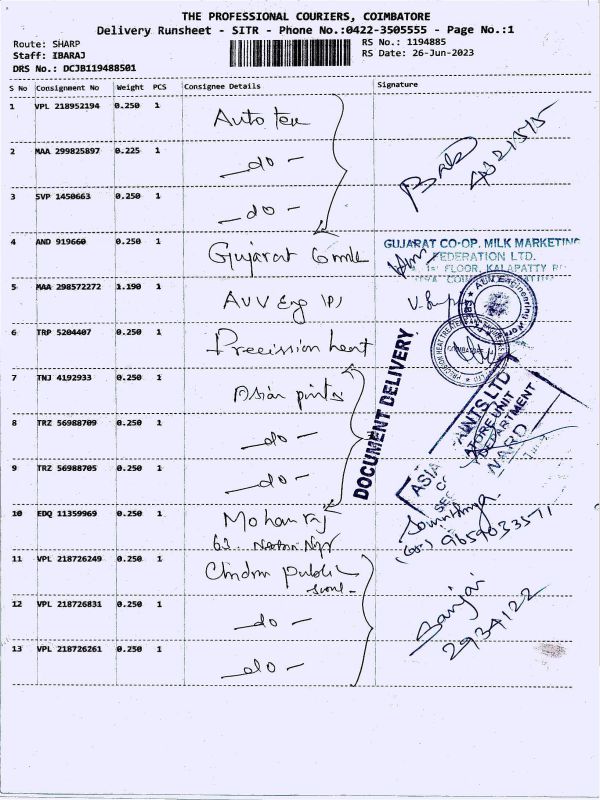 THE PROFESSIONAL COURIERS, COIMBATORE
Delivery Runsheet - SITR - Phone No.:0422-3505555 - Page No.:1
Route: SHARP
Staff: IBARAJ
DRS No.: DCJB119488501
RS No.: 1194885
RS Date: 26-Jun-2023
S No Consignment No Weight PCS Consignee Details Signature
1 VPL 218952194 0.250 1
2 MAA 299825897 0.225 1 -do-
3 SVP 1450663 0.250 1 -do-
4 AND 919660 0.250 1 Gujarat
GUJARAT CO-OP. MILK MARKETING
FEDERATION LTD.
FLOOR, KALAPATTY
5 MAA 298572272 1.190 1 Eng
6 TRP 5204407 0.250 1 Precission heat
7 TNJ 4192933 0.250 1 Asian
DOCUMENT DELIVERY
8 TRZ 56988709 0.250 1 -do-
9 TRZ 56988705 0.250 1 -do-
10 EDQ 11359969 0.250 1 Mohanraj
63.
9659033571
11 VPL 218726249 0.250 1 Public
12 VPL 218726831 0.250 1 -do-
Sanjai
2934122
13 VPL 218726261 0.250 1 -do-